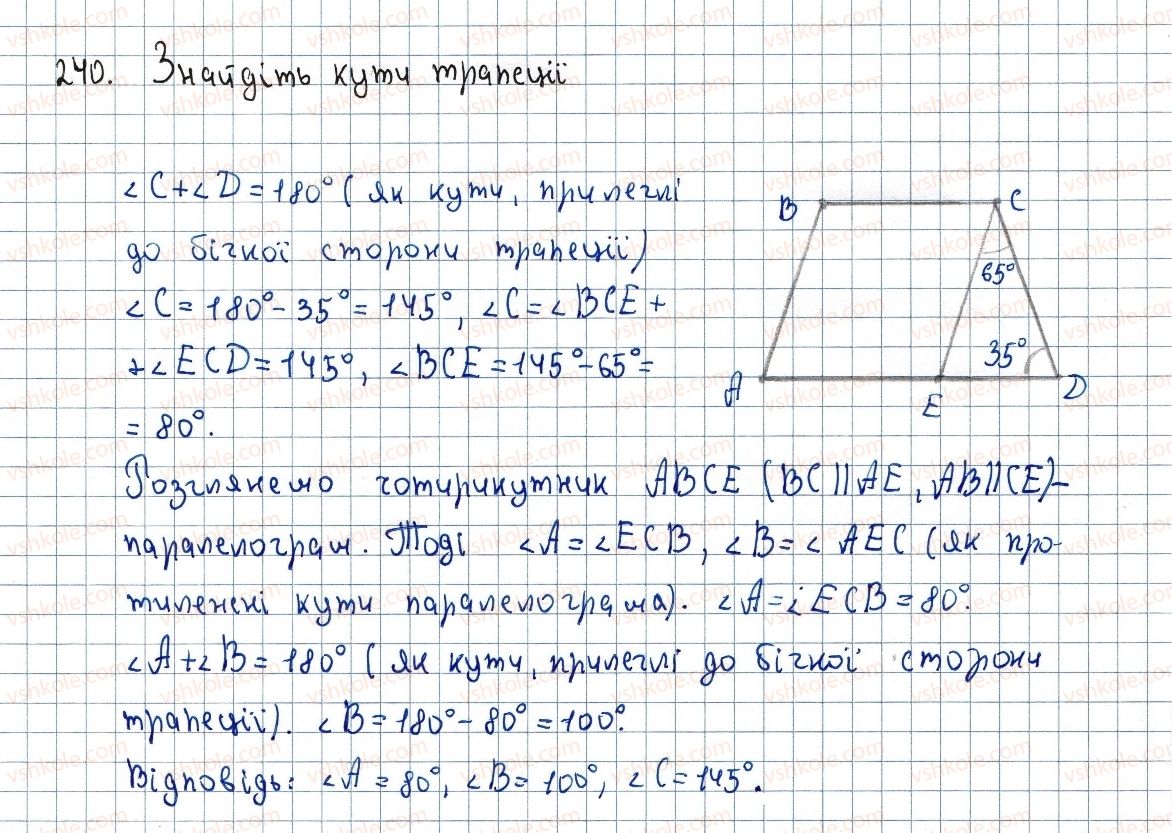 240. Знайдіть кути трапеції
∠C+∠D=180°( як кути, прилеглі
до бічної сторони трапеції)
∠C=180°-35°=145°, ∠C=∠BCE+
+∠ECD=145°, ∠BCE=145°-65°=
=80°.
Розглянемо чотирикутник ABCE (BC||AE, AB||CE)-
паралелограм. Тоді ∠A=∠ECB, ∠B=∠AEC (як про-
тилежні кути паралелограма). ∠A=∠ECB=80°.
∠A+∠B=180° ( як кути, прилеглі до бічної сторони
трапеції). ∠B=180°-80°=100°.
Відповідь: ∠A=80°, ∠B=100°, ∠C=145°.
B C
65°
35°
A E D